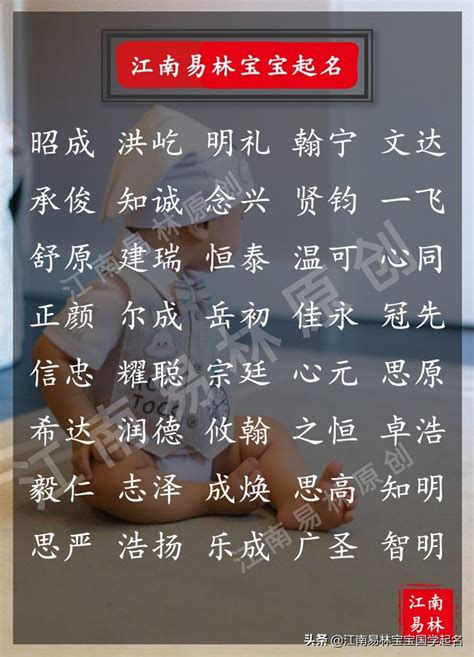 江南易林宝宝起名
昭成 洪屹 明礼 翰宁 文达
承俊 知诚 念兴 贤钧 一飞
舒原 建瑞 恒泰 温可 心同
正颜 尔成 岳初 佳永 冠先
信忠 耀聪 宗廷 心元 思原
希达 润德 攸翰 之恒 卓浩
毅仁 志泽 成焕 思高 知明
思严 浩扬 乐成 广圣 智明
江南易林原创
江南易林原创
江南易林原创
TOCK
江南
易林
头条 @江南易林宝宝国学起名